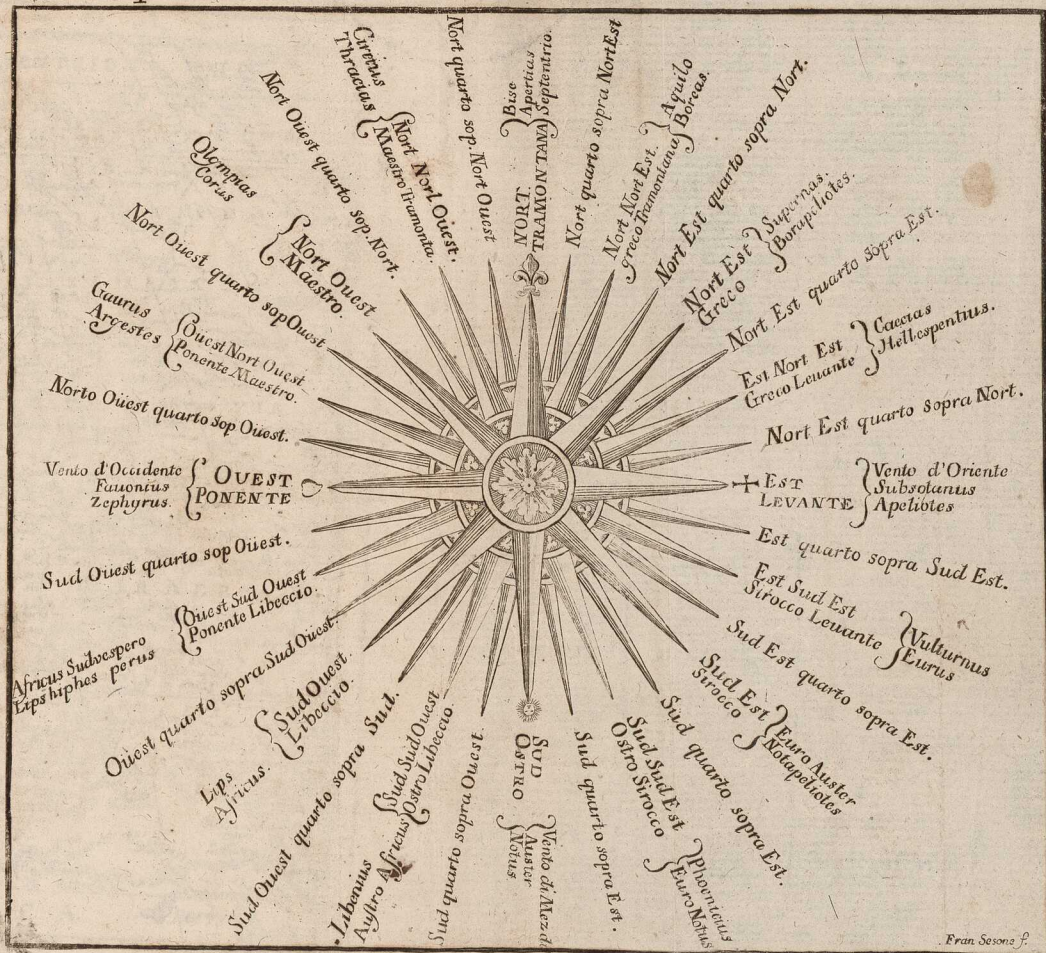 NORT.
TRAMONTANA
Bise
Apertias
Septentrio.
Nort quarto sopra Nort Est
Nort Nort Est.
greco Tramontana
Aquilo
Boreas.
Nort Est quarto sopra Nort.
Nort Est
Greco
Supernas.
Borapeliotes.
Nort Est quarto sopra Est.
Est Nort Est
Greco Leuante
Caecias
Hellespentius.
Nort Est quarto sopra Nort.
EST
LEVANTE
Vento d'Oriente
Subsolanus
Apeliotes
Est quarto sopra Sud Est.
Est Sud Est
Sirocco Leuante
Vulturnus
Eurus
Sud Est quarto sopra Est.
Sud Est
Sirocco
Euro Auster
Notapeliotes
Sud quarto sopra Est.
Sud Sud Est
Ostro Sirocco
Phoenicius
Euro Notus
Sud quarto sopra Est.
SUD
OSTRO
Vento di Mez di
Auster
Notus
Sud quarto sopra Ouest.
Sud Sud Ouest
Ostro Libeccio
Libenius
Austro Africus
Sud Oüest quarto sopra Sud.
Sud Ouest.
Libeccio.
Lips
Africus.
Oüest quarto sopra Sud Oüest.
Oüest Sud Ouest
Ponente Libeccio.
Africus Sudvespero
Lipshiphes perus
Sud Oüest quarto sop Oüest.
OVEST
PONENTE
Vento d'Occidente
Fauonius
Zephyrus.
Norto Oüest quarto sop Oüest.
Oüest Nort Ouest
Ponente Maestro.
Gaurus
Argestes
Nort Oüest quarto sop Ouest
Nort Ouest
Maestro.
Olympias
Corus
Nort Oüest quarto sop. Nort.
Nort Nort Oüest.
Maestro Tramonta.
Circius
Thracias
Nort quarto sop. Nort Ouest
Fran Sesone f.